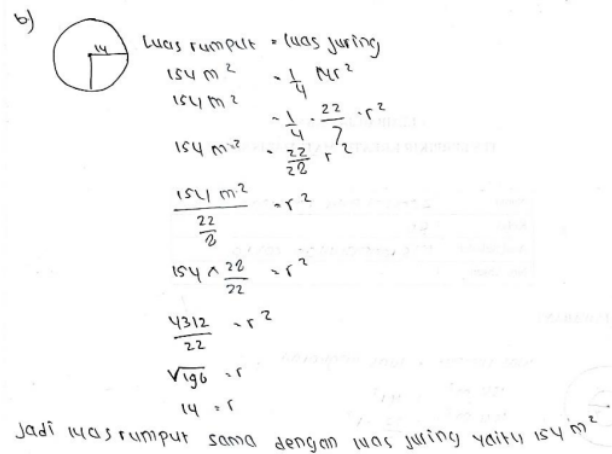 b)
14
Luas rumput = luas juring
154 m² = 1/4 πr²
154 m² = 1/4 · 22/7 · r²
154 m² = 22/28 r²
154 m² / 22/28 = r²
154 × 28/22 = r²
4312/22 = r²
√196 = r
14 = r
Jadi luas rumput sama dengan luas juring yaitu 154 m²